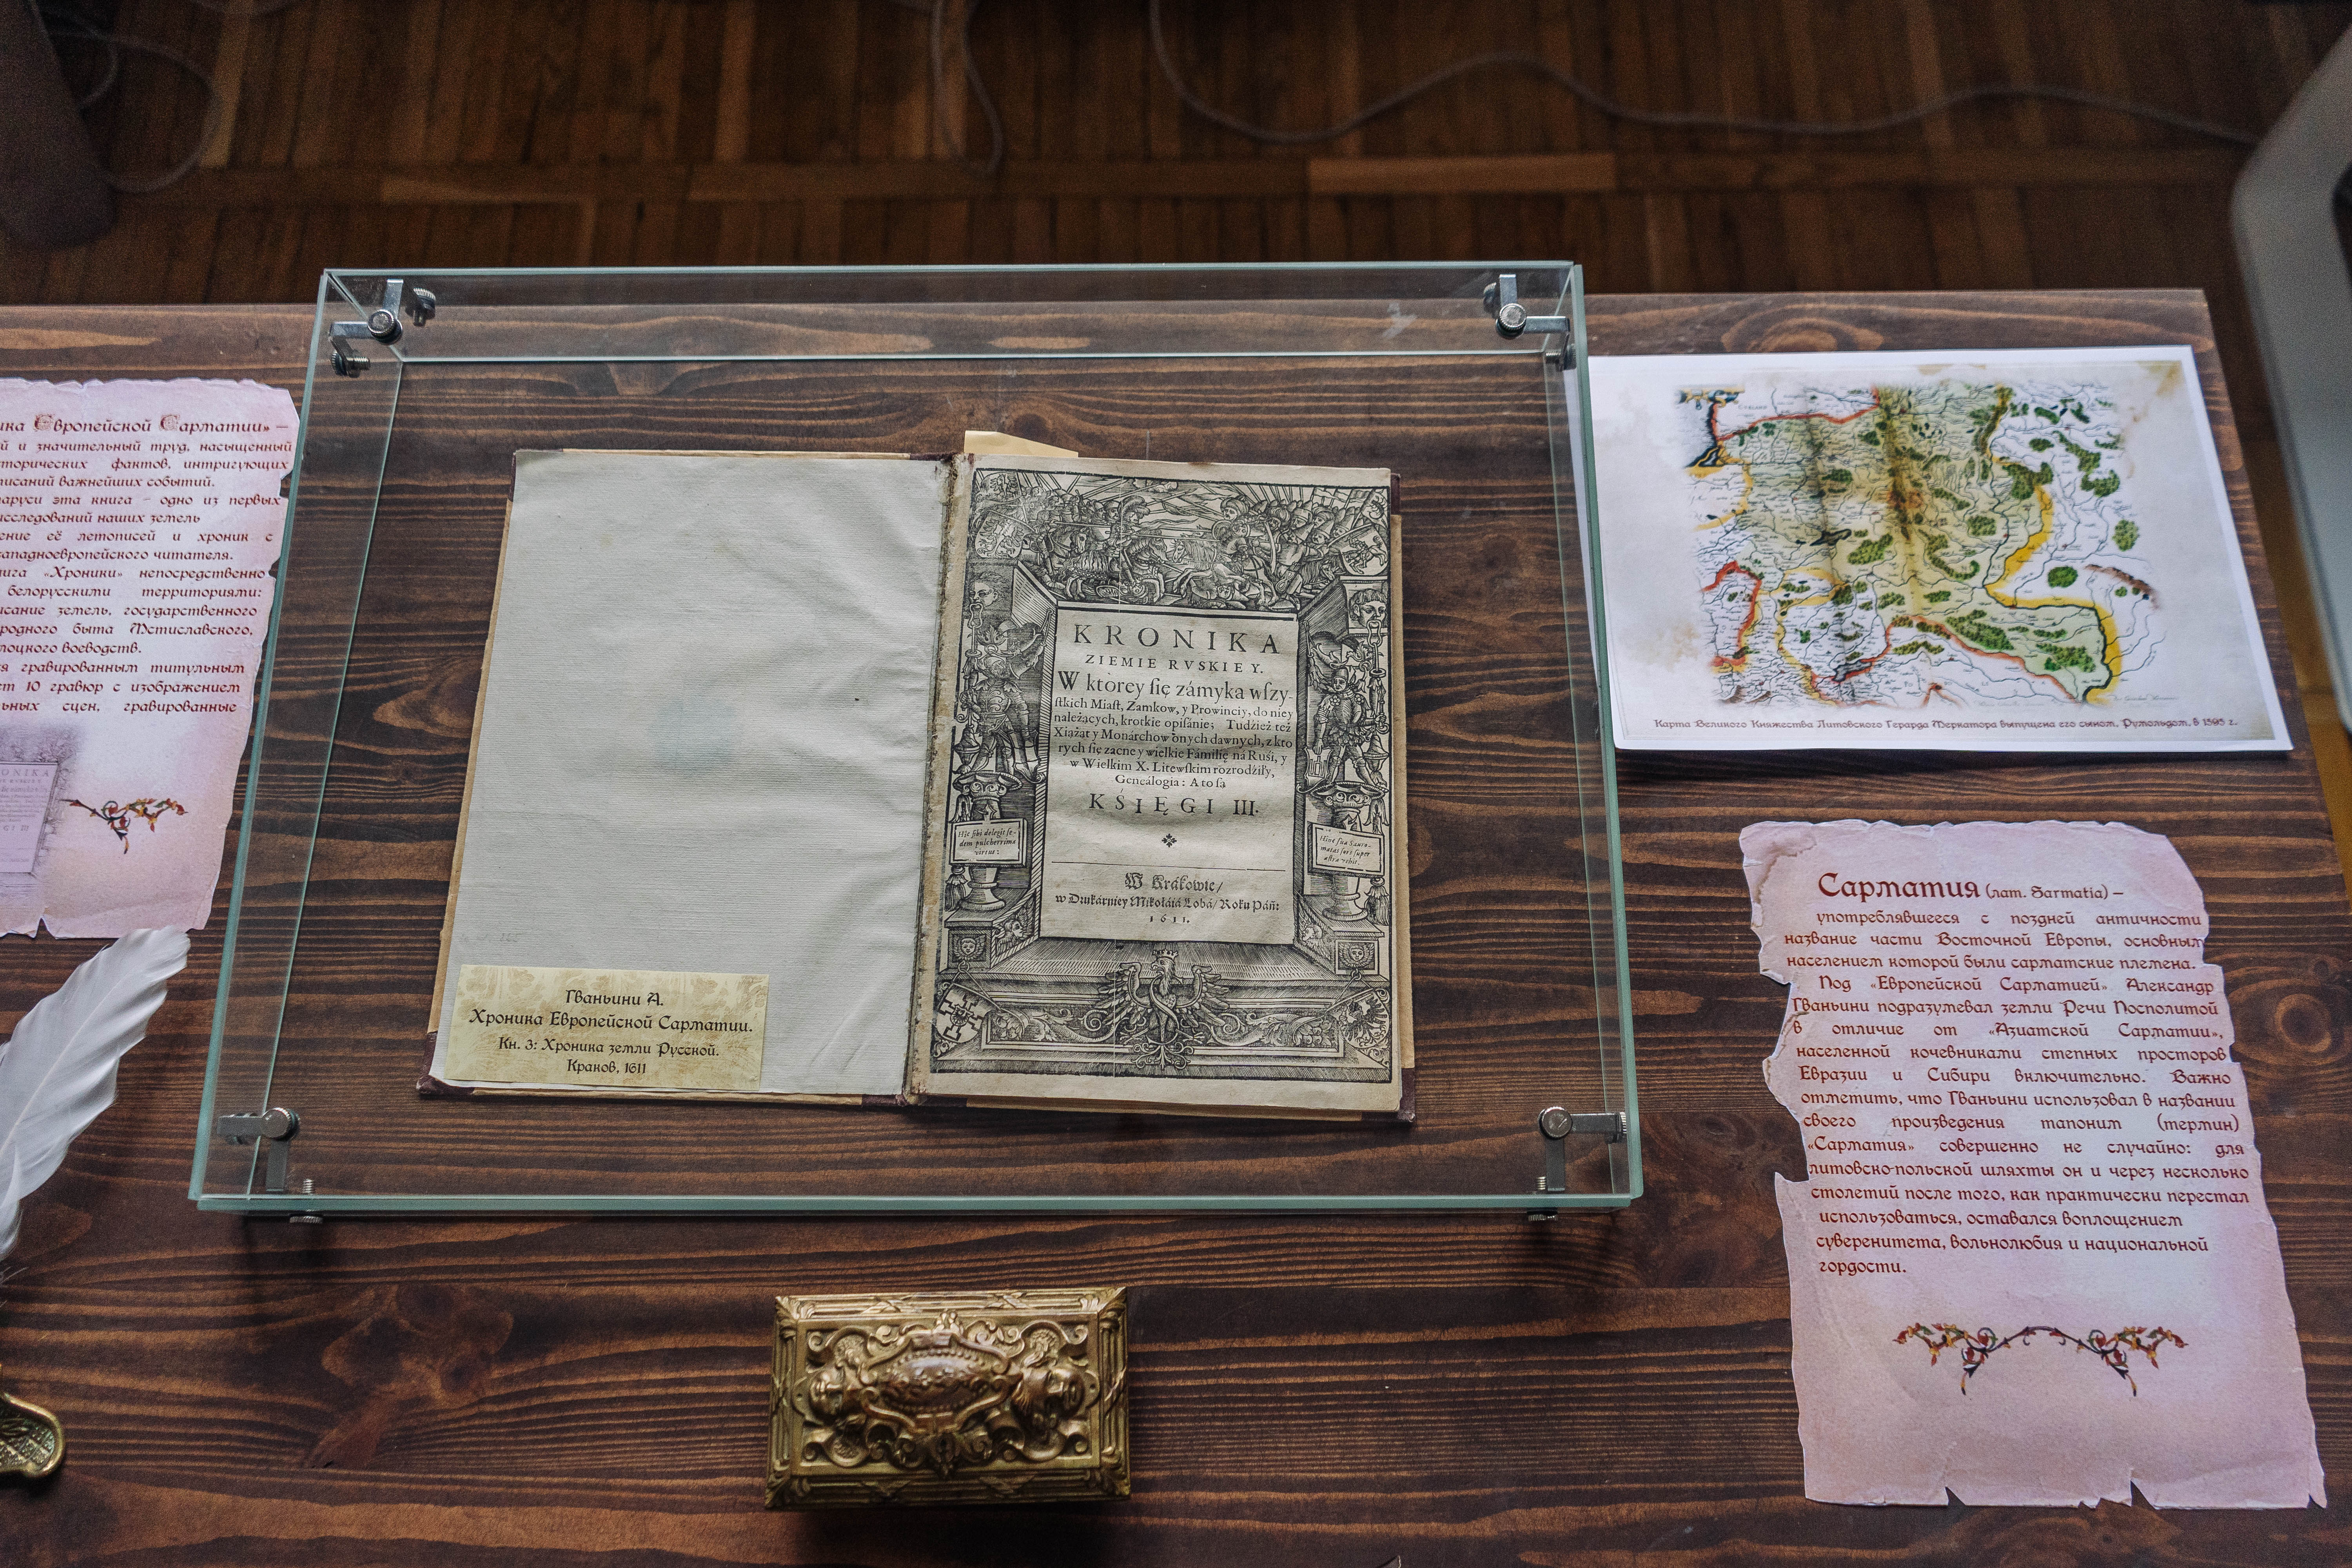 ика Европейской Сарматии» –
й и значительный труд, насыщенный
торических фактов, интригующих
писаний важнейших событий.
аруси эта книга – одно из первых
исследований наших земель
ение её летописей и хроник с
западноевропейского читателя.
нига «Хроники» непосредственно
белорусскими территориями:
исание земель, государственного
родного быта Мстиславского,
лоцкого воеводств.
ся гравированным титульным
ет 10 гравюр с изображением
ьных сцен, гравированные
KRONIKA
ZIEMIE RVSKIEY.
W ktorey się zámyka wszy-
stkich Miast, Zamkow, y Prowinciy, do niey
należących, krotkie opisánie; Tudzież też
Xiążąt y Monarchow onych dawnych, z kto
rych się zacne y wielkie Fámilię ná Ruśi, y
w Wielkim X. Litewskim rozrodźiły,
Geneálogia: A to są
KSIĘGI III.
W Krákowie/
w Drukárniey Mikołáiá Lobá/ Roku Páń:
1611.
Hic sibi delegit se-
dem pulcherrima
virtus:
Hinc sua Sauro-
matas fors super
astra vehit.
Гваньини А.
Хроника Европейской Сарматии.
Кн. 3: Хроника земли Русской.
Краков, 1611
Карта Великого Княжества Литовского Герарда Меркатора выпущена его сыном, Румольдом, в 1595 г.
Сарматия (лат. Sarmatia) –
употреблявшееся с поздней античности
название части Восточной Европы, основным
населением которой были сарматские племена.
Под «Европейской Сарматией» Александр
Гваньини подразумевал земли Речи Посполитой
в отличие от «Азиатской Сарматии»,
населенной кочевниками степных просторов
Евразии и Сибири включительно. Важно
отметить, что Гваньини использовал в названии
своего произведения тапоним (термин)
«Сарматия» совершенно не случайно: для
литовско-польской шляхты он и через несколько
столетий после того, как практически перестал
использоваться, оставался воплощением
суверенитета, вольнолюбия и национальной
гордости.